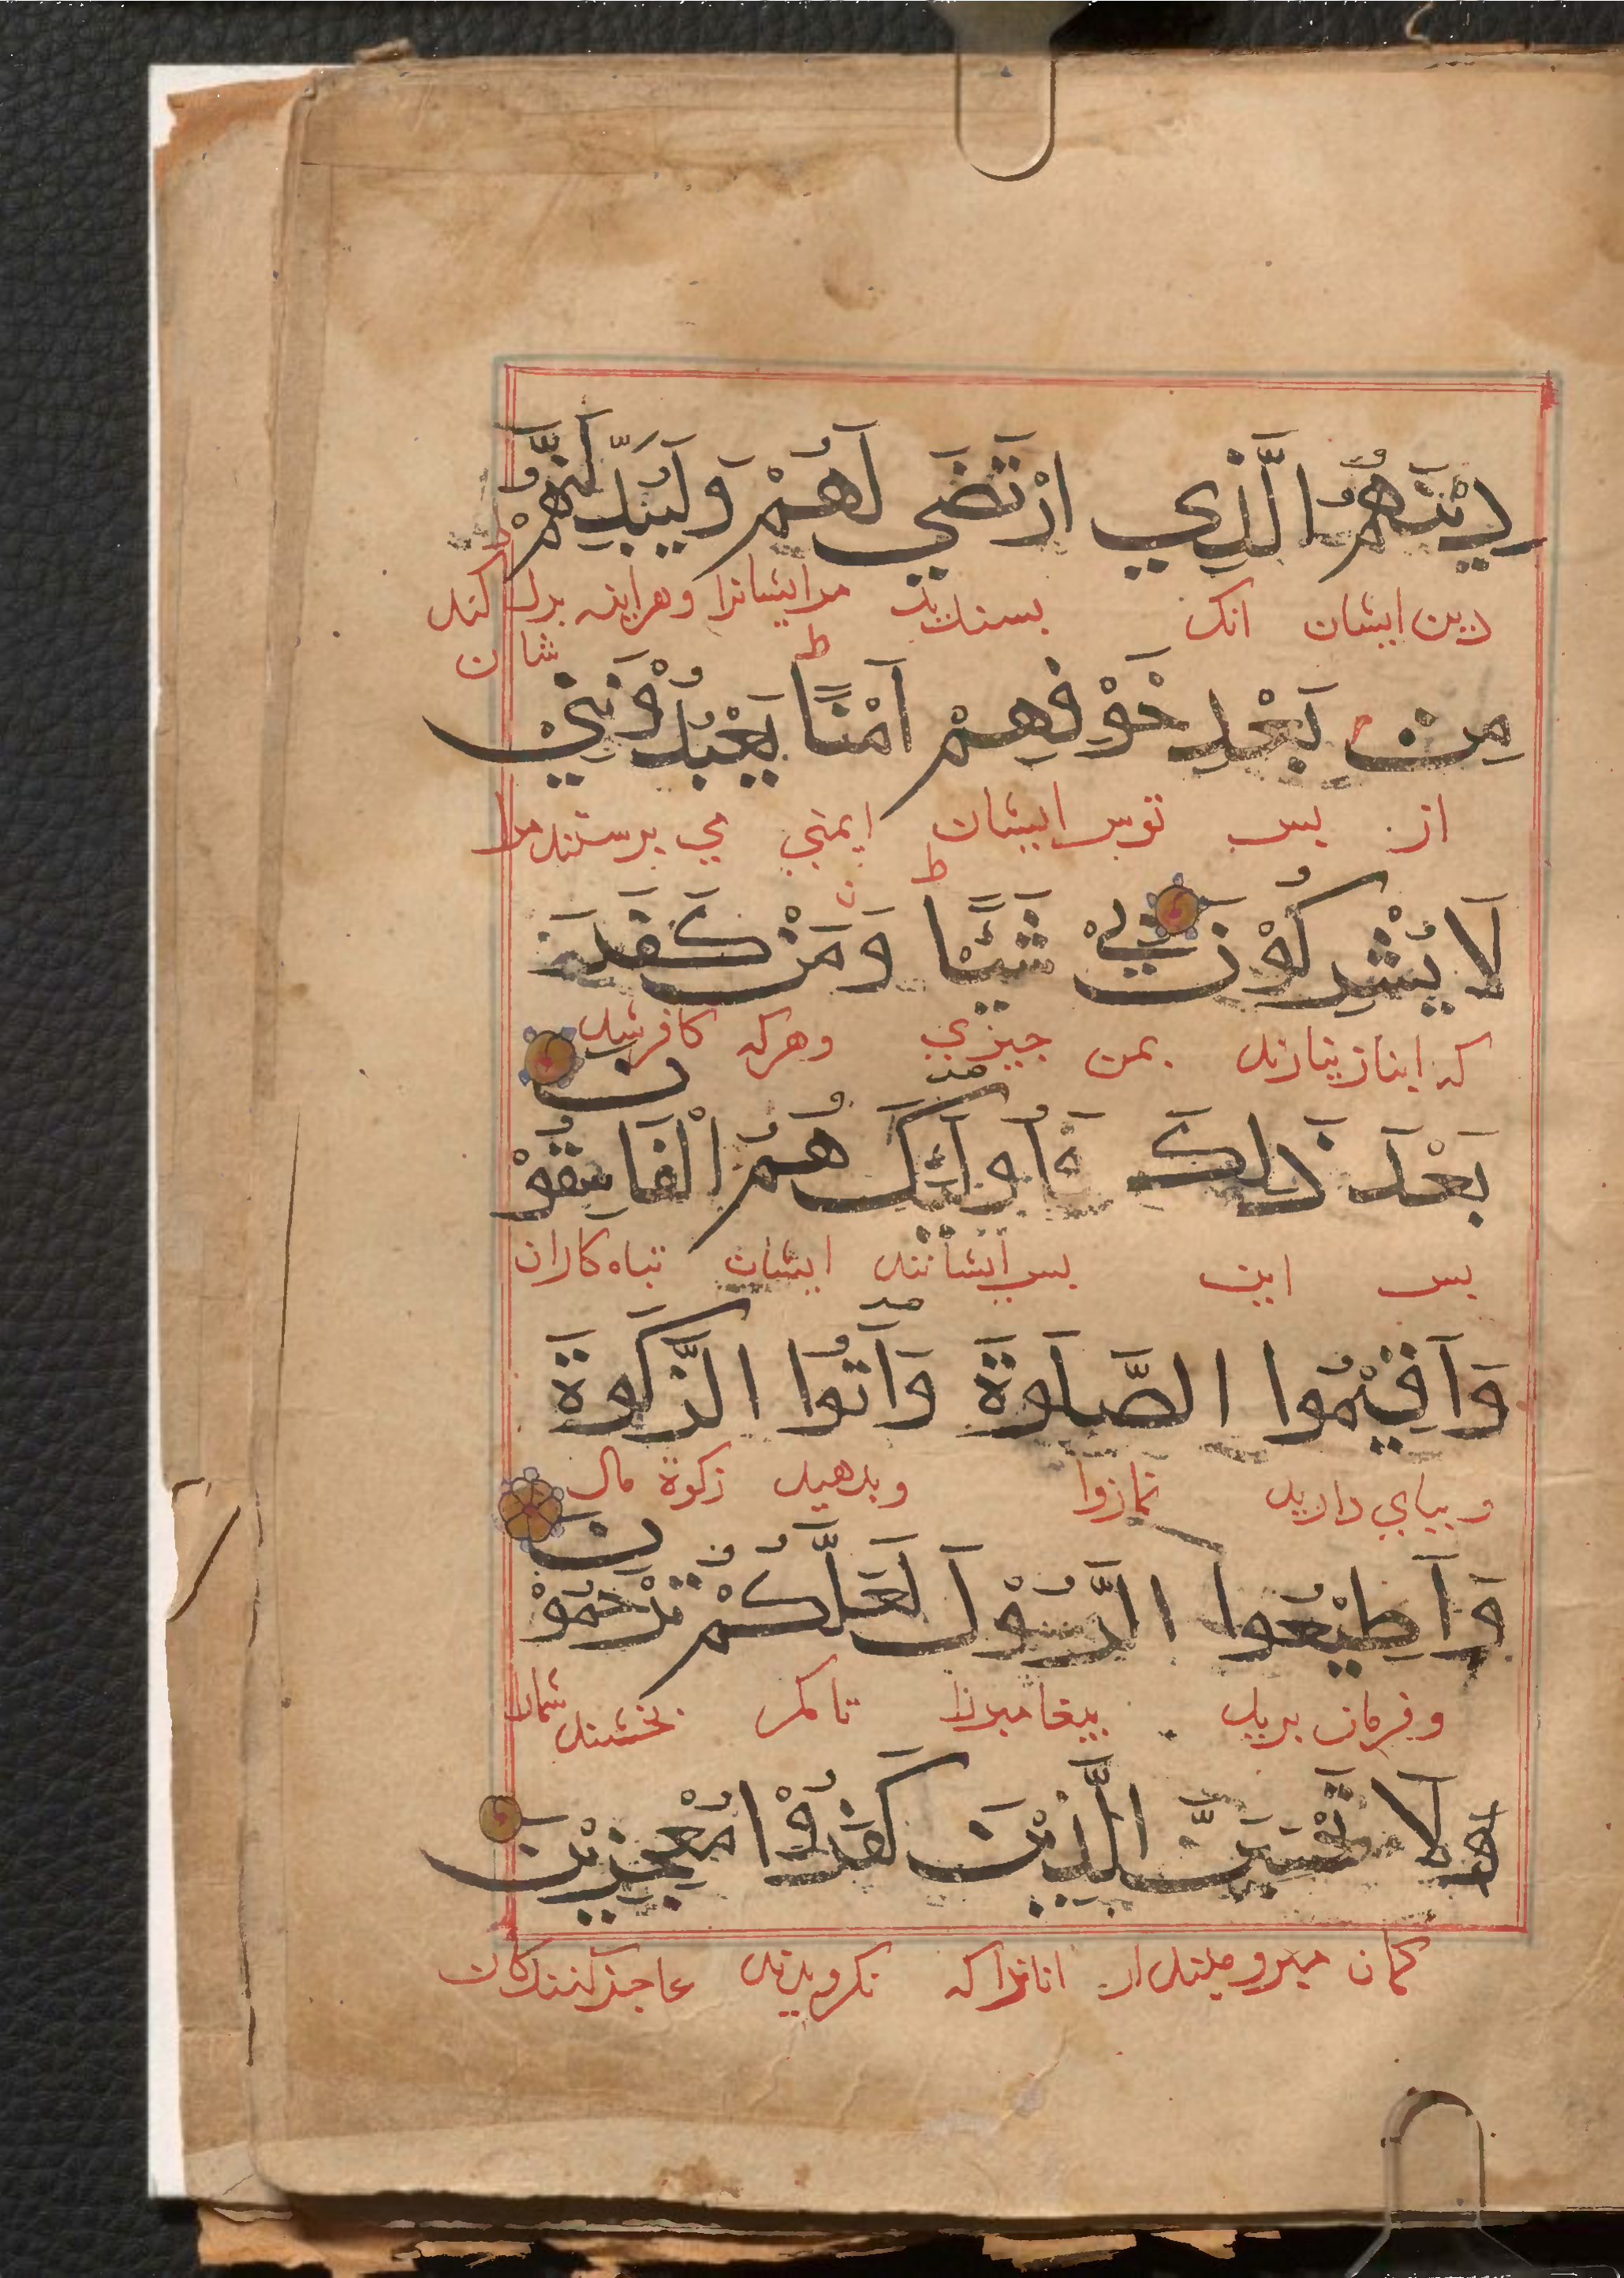 دِيْنَهُمُ الَّذِي ارْتَضَي لَهُمْ وَلَيُبَدِّلَنَّهُمْ
دین ایشان انک بسندید مر ایشانرا و هراینه بدل کند
شان
مِنْ بَعْدِ خَوْفِهِمْ اَمْنًا يَعْبُدُوْنَنِيْ
از بس ترس ایشان ایمنی می برستند مرا
لَا يُشْرِكُوْنَ بِيْ شَيْئًا وَمَنْ كَفَرَ
که انباز نیارند بمن جیزی و هرکه کافر شد
بَعْدَ ذٰلِكَ فَاُولٰئِكَ هُمُ الْفَاسِقُوْنَ
بس این بس ایشانند ایشان تباه کاران
وَاَقِيْمُوا الصَّلٰوةَ وَاٰتُوا الزَّكٰوةَ
و ببای دارید نمازرا و بدهید زکوة مال
وَاَطِيْعُوا الرَّسُوْلَ لَعَلَّكُمْ تُرْحَمُوْنَ
و فرمان برید بیغامبررا تا مکر بخشند شمارا
لَا تَحْسَبَنَّ الَّذِيْنَ كَفَرُوْا مُعْجِزِيْنَ
کمان انانرا که نکرویدند عاجز کنندکان